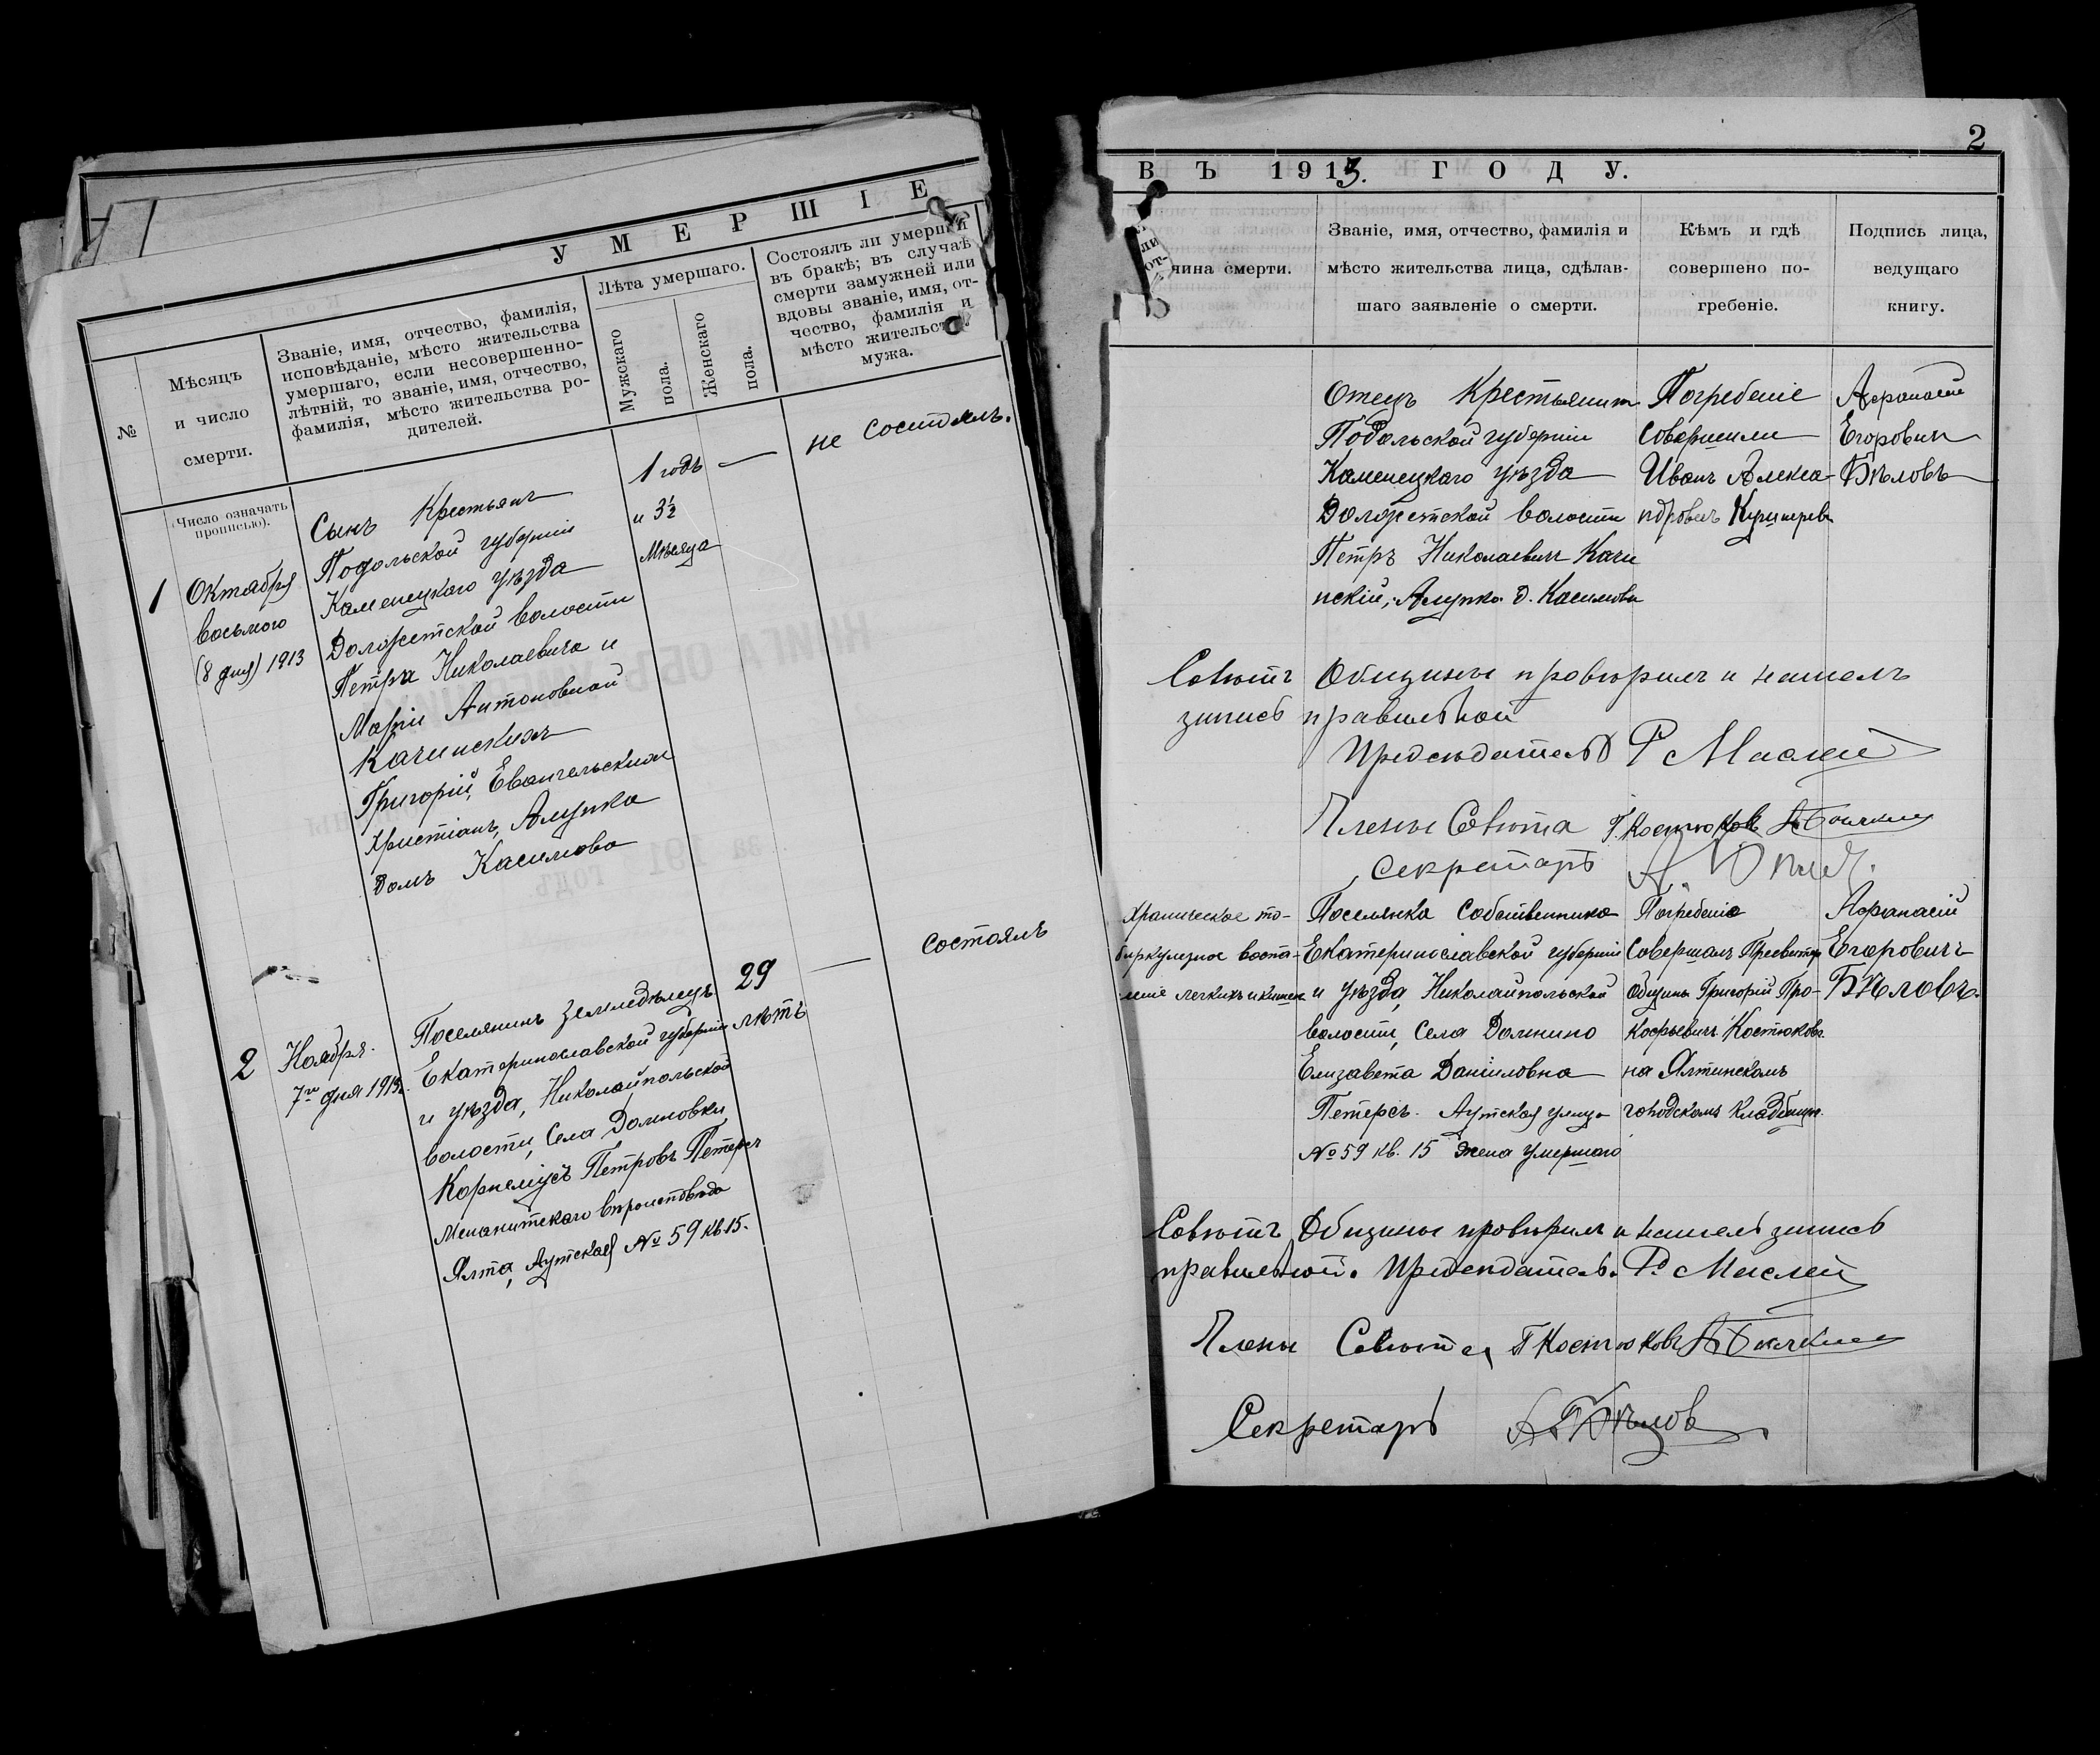 УМЕРШІЕ
№
Мѣсяцъ
и число
смерти.
(Число означать
прописью).
Званіе, имя, отчество, фамилія,
исповѣданіе, мѣсто жительства
умершаго, если несовершенно-
лѣтній, то званіе, имя, отчество,
фамилія, мѣсто жительства ро-
дителей.
Лѣта умершаго.
Мужскаго
пола.
Женскаго
пола.
Состоялъ ли умершій
въ бракѣ; въ случаѣ
смерти замужней или
вдовы званіе, имя, от-
чество, фамилія и
мѣсто жительства
мужа.
1
Октября
восьмого
(8 дня) 1913
Сынъ Крестьянъ
Подольской губерніи
Каменецкого уѣзда
Должетской волости
Петра Николаевича и
Маріи Антоновной
Качинскихъ
Григорій, Евангельскихъ
Христіанъ, Алупка
домъ Касимова
1 годъ
и 3½
мѣсяца
—
не состоялъ.
2
Ноября.
7го дня 1913г.
Поселянинъ Земледѣлецъ
Екатеринославской губерніи
и уѣзда, Николайпольской
волости, Села Долиновки,
Корнеліусъ Петровъ Петерсъ
Менонитскаго вѣроисповѣда
Ялта, Аутская № 59 кв. 15.
29
лѣтъ
—
состоялъ
2
ВЪ 1913. ГОДУ.
чина смерти.
Званіе, имя, отчество, фамилія и
мѣсто жительства лица, сдѣлав-
шаго заявленіе о смерти.
Кѣмъ и гдѣ
совершено по-
гребеніе.
Подпись лица,
ведущаго
книгу.
Отецъ Крестьянинъ
Подольской губерніи
Каменецкаго уѣзда
Должетской волости
Петръ Николаевичъ Качи
нскій, Алупка д. Касимова
Погребеніе
Совершили
Иванъ Алекса-
ндровичъ
Афанасій
Егоровичъ
Бѣловъ
Совѣтъ Общины провѣрилъ и нашелъ
запись правильной
Предсѣдатель Р Маслей
Члены Совѣта Г. Костюковъ
Секретарь
Хроническое ту-
беркулезное воспа-
леніе легкихъ и кишек
Поселянка Собственника
Екатеринославской губерніи
и уѣзда, Николайпольской
волости, Села Долиино
Елизавета Даніиловна
Петерсъ. Аутская улица
№ 59 кв. 15 жена умершаго
Погребеніе
Совершалъ Пресвитеръ
Общины Григорій Про-
кофьевичъ Костюковъ.
на Ялтинскомъ
городскомъ Кладбищѣ.
Афанасій
Егоровичъ
Бѣловъ.
Совѣтъ Общины провѣрилъ и нашелъ запись
правильной. Предсѣдатель. Р. Маслей
Члены Совѣта Г Костюковъ
Секретарь А Бѣлов